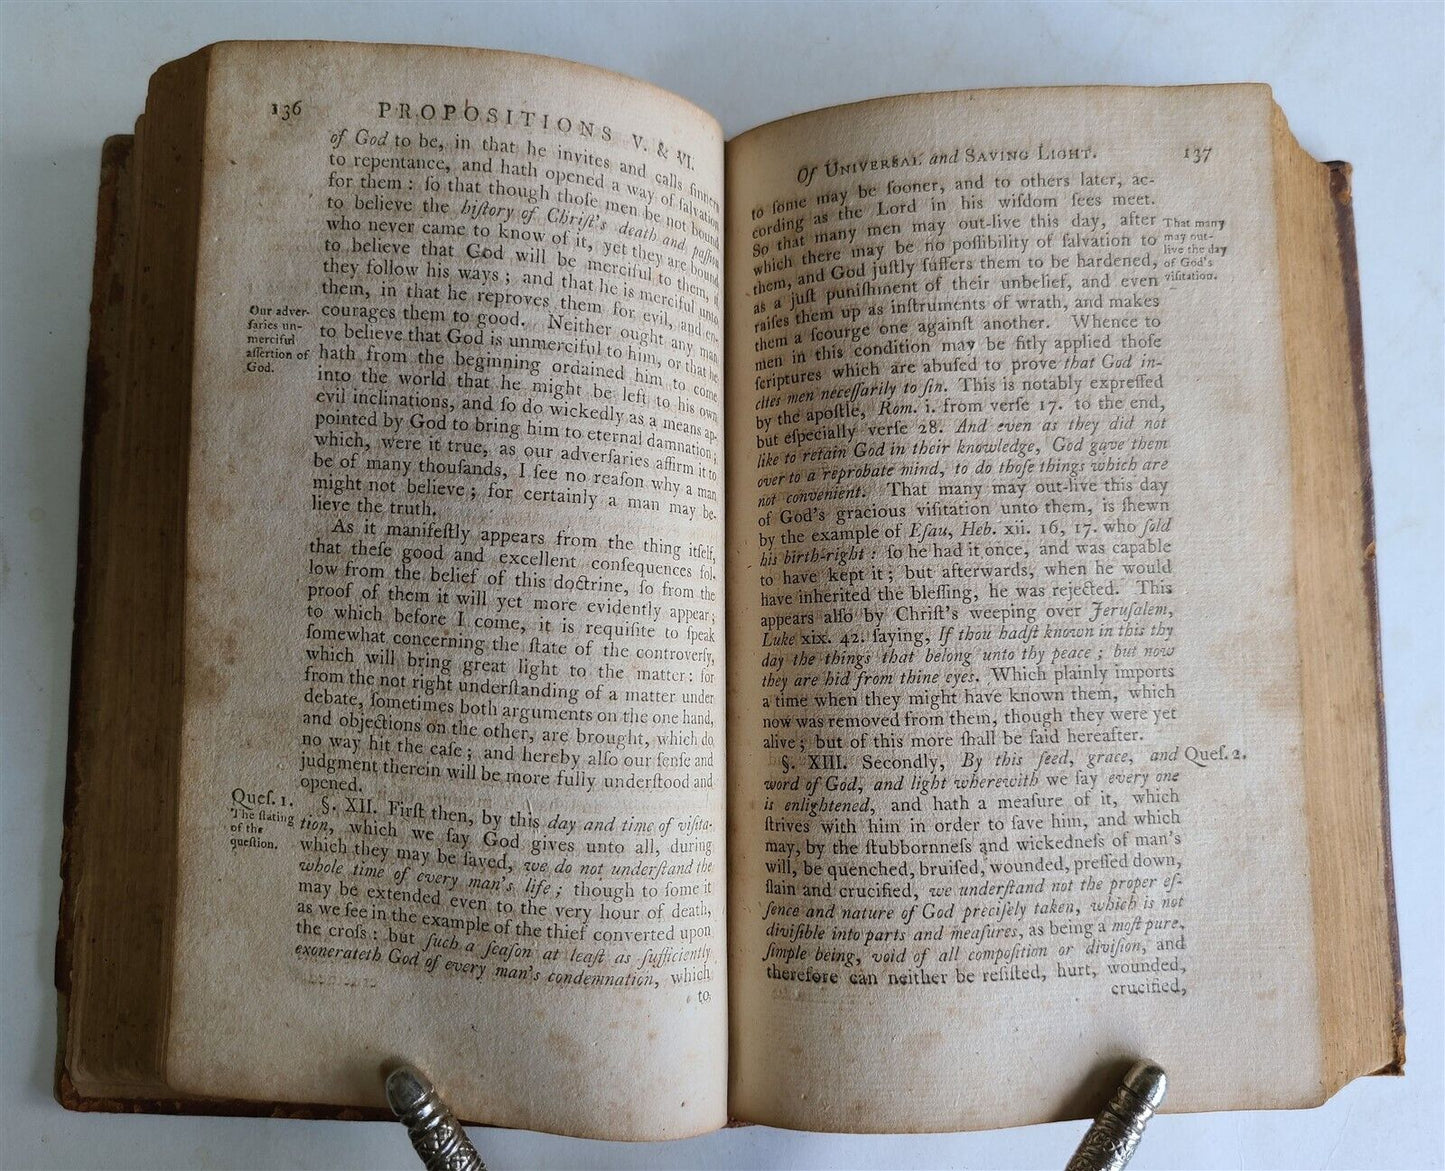 136 PROPOSITIONS V. & VI.
of God to be, in that he invites and calls ſinners
to repentance, and hath opened a way of ſalvation
for them : ſo that though thoſe men be not bound
to believe the hiſtory of Chriſt's death and paſſion
who never came to know of it, yet they are bound
to believe that God will be merciful to them, if
they follow his ways ; and that he is merciful unto
them, in that he reproves them for evil, and en-
Our adver-
ſaries un-
merciful
aſſertion of
God.
courages them to good. Neither ought any man
to believe that God is unmerciful to him, or that he
hath from the beginning ordained him to come
into the world that he might be left to his own
evil inclinations, and ſo do wickedly as a means ap-
pointed by God to bring him to eternal damnation ;
which, were it true, as our adverſaries affirm it to
be of many thouſands, I ſee no reaſon why a man
might not believe ; for certainly a man may be-
lieve the truth.
As it manifeſtly appears from the thing itſelf,
that theſe good and excellent conſequences fol-
low from the belief of this doctrine, ſo from the
proof of them it will yet more evidently appear ;
to which before I come, it is requiſite to ſpeak
ſomewhat concerning the ſtate of the controverſy,
which will bring great light to the matter : for
from the not right underſtanding of a matter under
debate, ſometimes both arguments on the one hand,
and objections on the other, are brought, which do
no way hit the caſe ; and hereby alſo our ſenſe and
judgment therein will be more fully underſtood and
opened.
Queſ. 1.
The ſtating
of the
queſtion.
§. XII. Firſt then, by this day and time of viſita-
tion, which we ſay God gives unto all, during
which they may be ſaved, we do not underſtand the
whole time of every man's life ; though to ſome it
may be extended even to the very hour of death,
as we ſee in the example of the thief converted upon
the croſs : but ſuch a ſeaſon at leaſt as ſufficiently
exonerateth God of every man's condemnation, which
to
Of UNIVERSAL and SAVING LIGHT. 137
to ſome may be ſooner, and to others later, ac-
cording as the Lord in his wiſdom ſees meet.
So that many men may out-live this day, after
which there may be no poſſibility of ſalvation to
them, and God juſtly ſuffers them to be hardened,
as a juſt puniſhment of their unbelief, and even
raiſes them up as inſtruments of wrath, and makes
them a ſcourge one againſt another. Whence to
men in this condition may be fitly applied thoſe
ſcriptures which are abuſed to prove that God in-
cites men neceſſarily to ſin. This is notably expreſſed
by the apoſtle, Rom. i. from verſe 17. to the end,
but eſpecially verſe 28. And even as they did not
like to retain God in their knowledge, God gave them
over to a reprobate mind, to do thoſe things which are
not convenient. That many may out-live this day
of God's gracious viſitation unto them, is ſhewn
by the example of Eſau, Heb. xii. 16, 17. who ſold
his birth-right : ſo he had it once, and was capable
to have kept it ; but afterwards, when he would
have inherited the bleſſing, he was rejected. This
appears alſo by Chriſt's weeping over Jeruſalem,
Luke xix. 42. ſaying, If thou hadſt known in this thy
day the things that belong unto thy peace ; but now
they are hid from thine eyes. Which plainly imports
a time when they might have known them, which
now was removed from them, though they were yet
alive ; but of this more ſhall be ſaid hereafter.
That many
may out-
live the day
of God's
viſitation.
§. XIII. Secondly, By this ſeed, grace, and
word of God, and light wherewith we ſay every one
is enlightened, and hath a meaſure of it, which
ſtrives with him in order to ſave him, and which
may, by the ſtubbornneſs and wickedneſs of man's
will, be quenched, bruiſed, wounded, preſſed down,
ſlain and crucified, we underſtand not the proper eſ-
ſence and nature of God preciſely taken, which is not
diviſible into parts and meaſures, as being a moſt pure,
ſimple being, void of all compoſition or diviſion, and
therefore can neither be reſiſted, hurt, wounded,
crucified,
Queſ. 2.